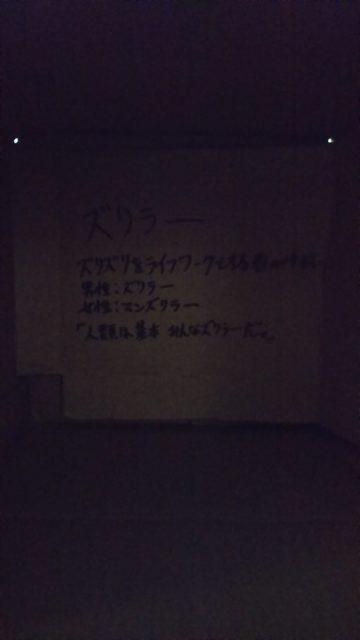 ズリラー
ズリズリをライフワークとする
男性:ズリラー
女性:マンズリラー
「人類は基本 みんなズリラーだ。